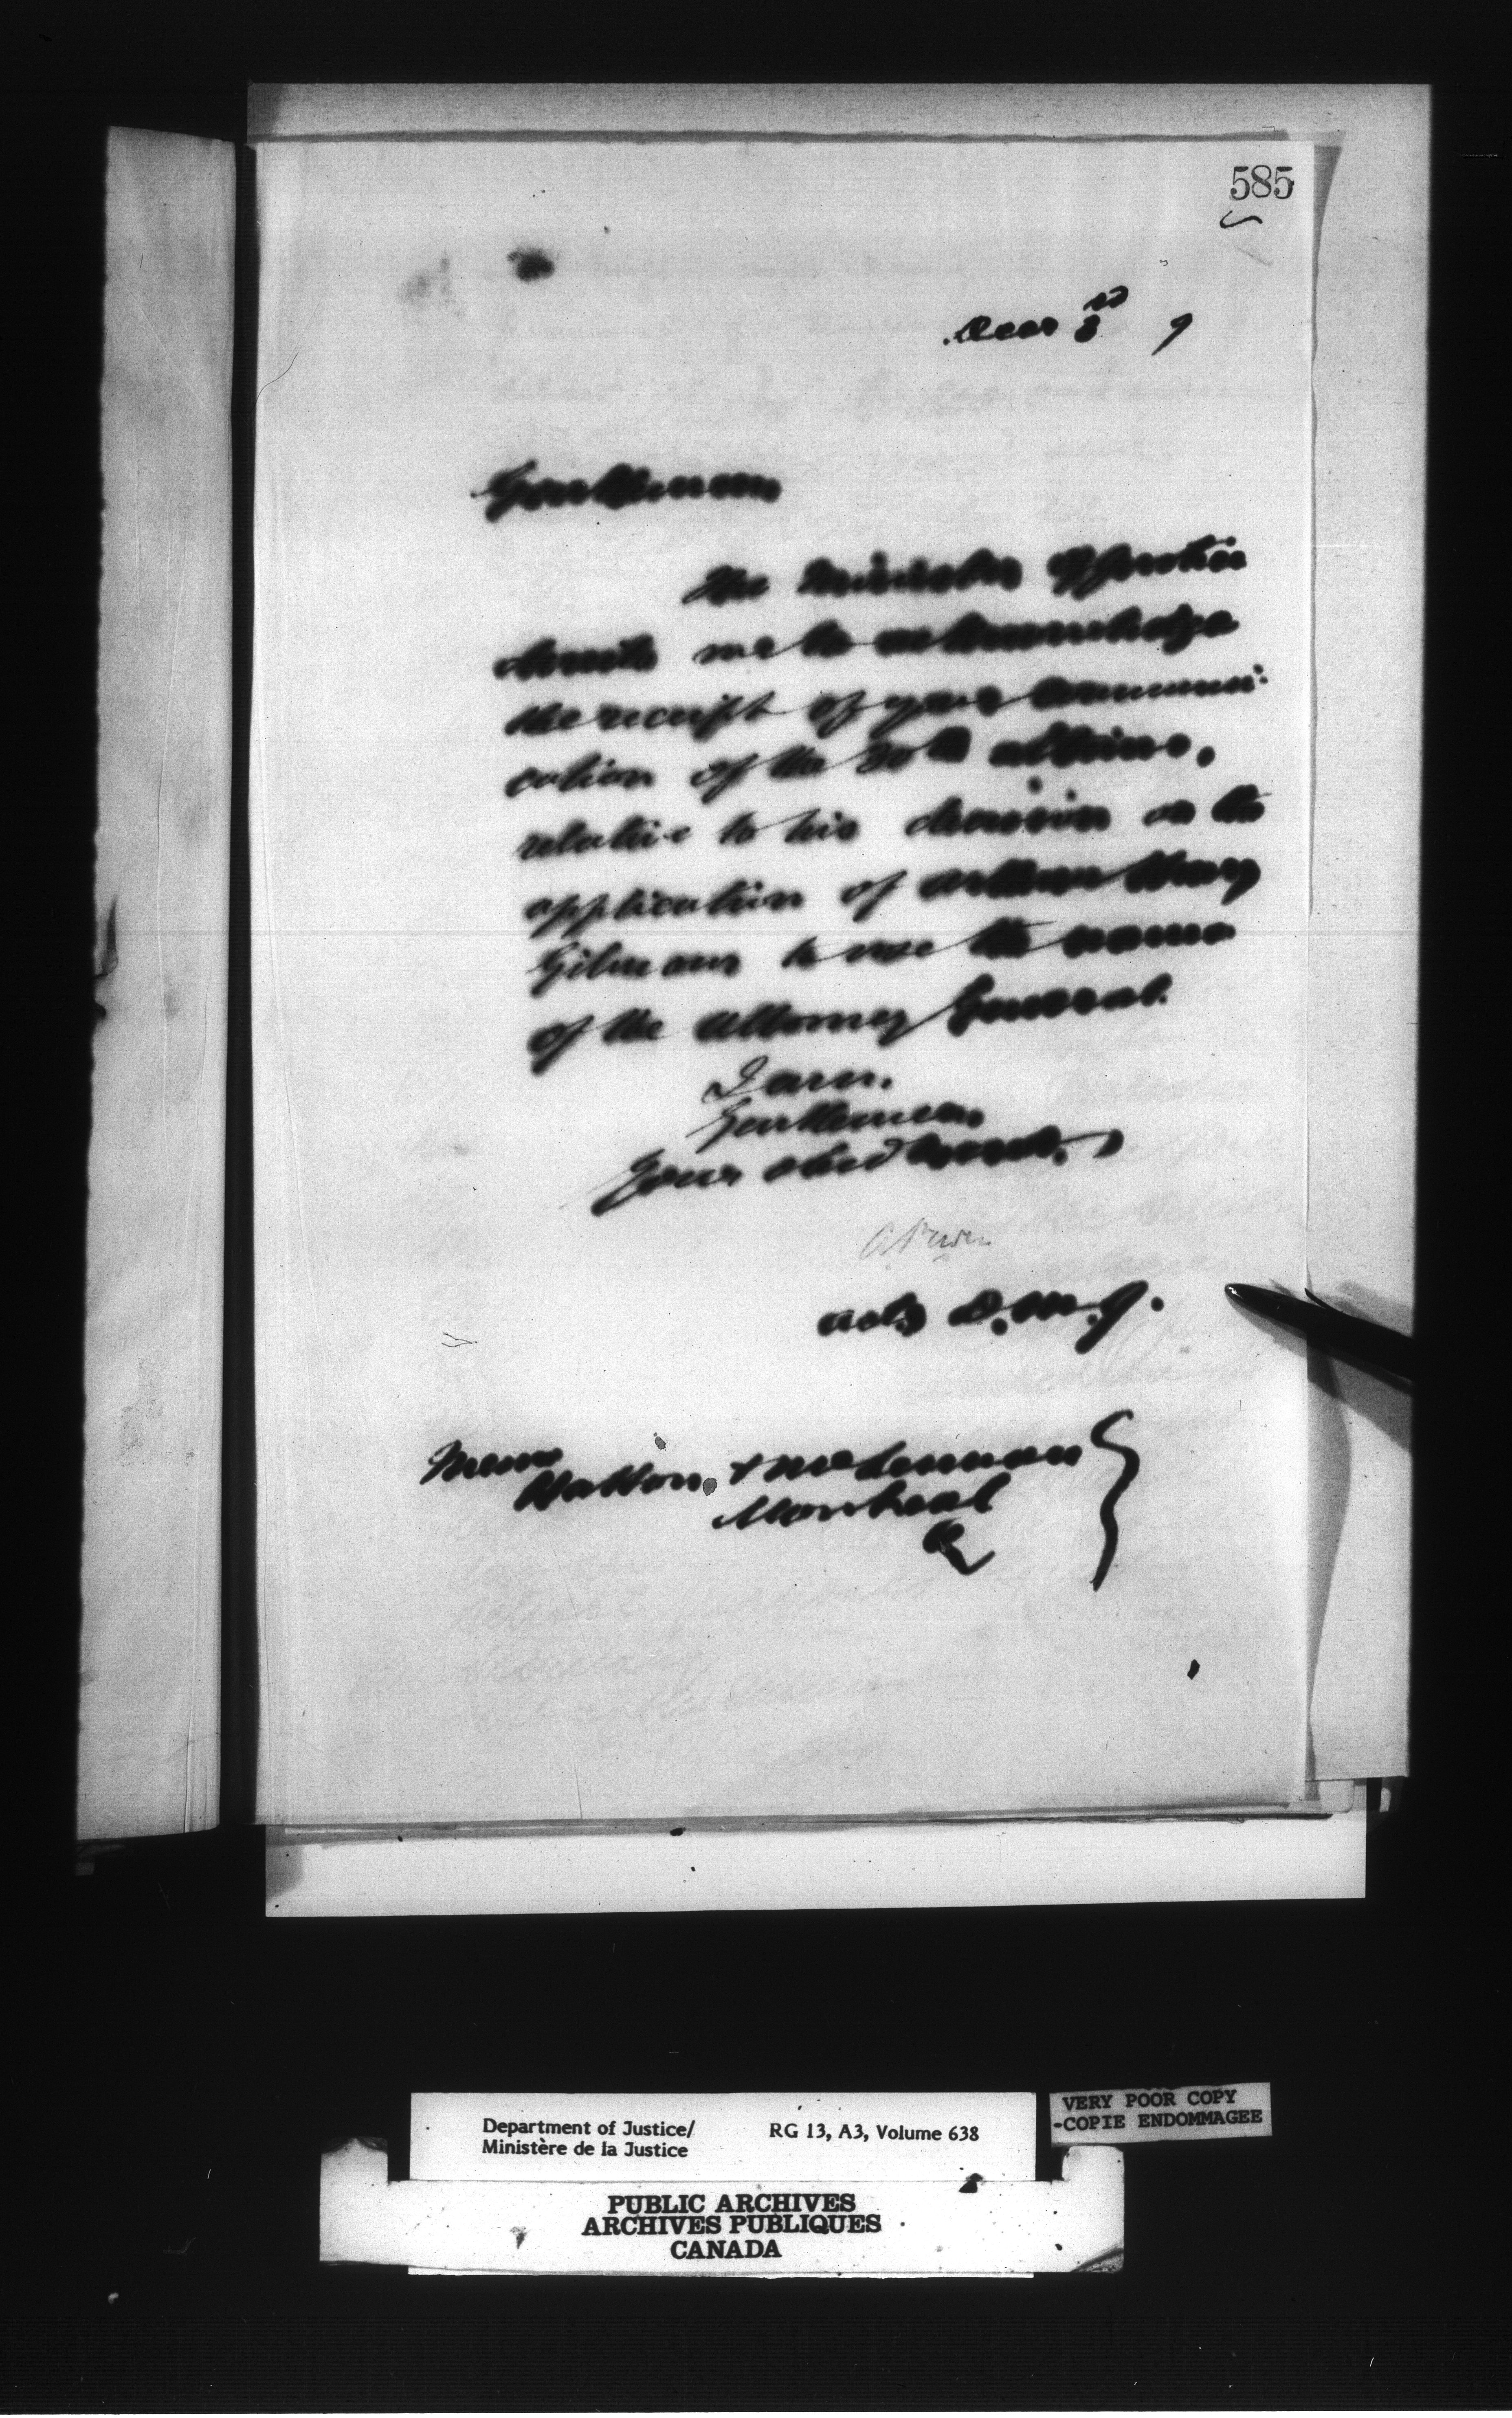 585
Decr 3rd 9
Gentlemen
The Minister of Justice
directs me to acknowledge
the receipt of your communi-
cation of the 30th ultimo,
relative to his decision on the
application of Arthur
Gilmour to use the name
of the Attorney General.
I am,
Gentlemen
Your obed Servt,
Actg D.M.J.
Messrs
Hatton & McLennan
Montreal
Q
Department of Justice/
Ministère de la Justice
RG 13, A3, Volume 638
VERY POOR COPY
-COPIE ENDOMMAGEE
PUBLIC ARCHIVES
ARCHIVES PUBLIQUES
CANADA